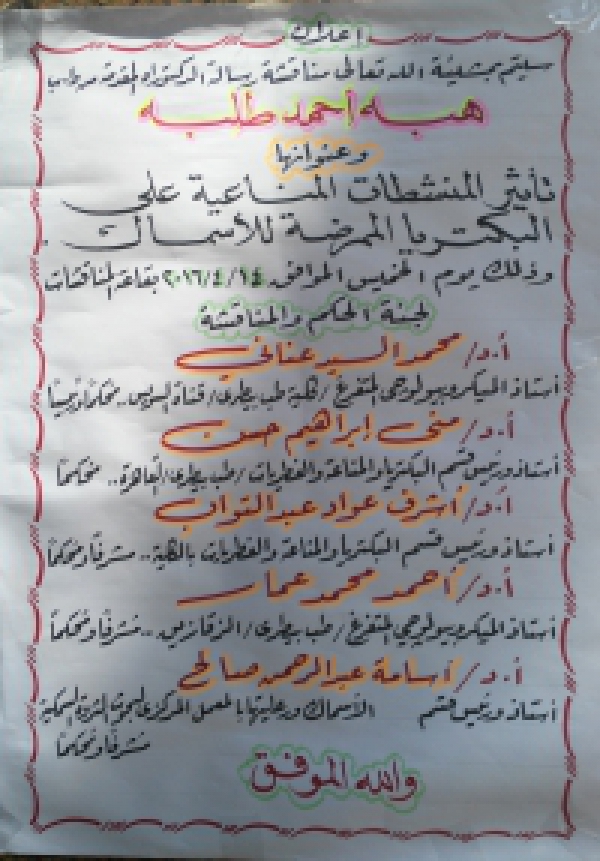 إعلان
سيتم بمشيئة الله تعالى مناقشة رسالة الدكتوراه المقدمة من ط.ب
هبه أحمد طلبه
وعنوانها
تأثير المنشطات المناعية على
البكتريا الممرضة للأسماك .
وذلك يوم الخميس الموافق ٢٠١٦/٤/١٤ بقاعة المناقشات
لجنة الحكم والمناقشة
أ.د/ محمد السيد عناني
أستاذ الميكروبيولوجي المتفرغ / كلية طب بيطري / قناة السويس .. محكماً رئيسياً
أ.د/ منى إبراهيم حسن
أستاذ ورئيس قسم البكتريا والمناعة والفطريات / طب بيطري القاهرة .. محكماً
أ.د/ أشرف عواد عبد التواب
أستاذ ورئيس قسم البكتريا والمناعة والفطريات بالكلية .. مشرفاً ومحكماً
أ.د/ أحمد محمد عمار
أستاذ الميكروبيولوجي المتفرغ / طب بيطري / الزقازيق .. مشرفاً ومحكماً
أ.د/ أسامة عبد الرحمن صالح
أستاذ ورئيس قسم الأسماك ورعايتها بالمعمل المركزي لبحوث الثروة السمكية
مشرفاً ومحكماً
والله الموفق